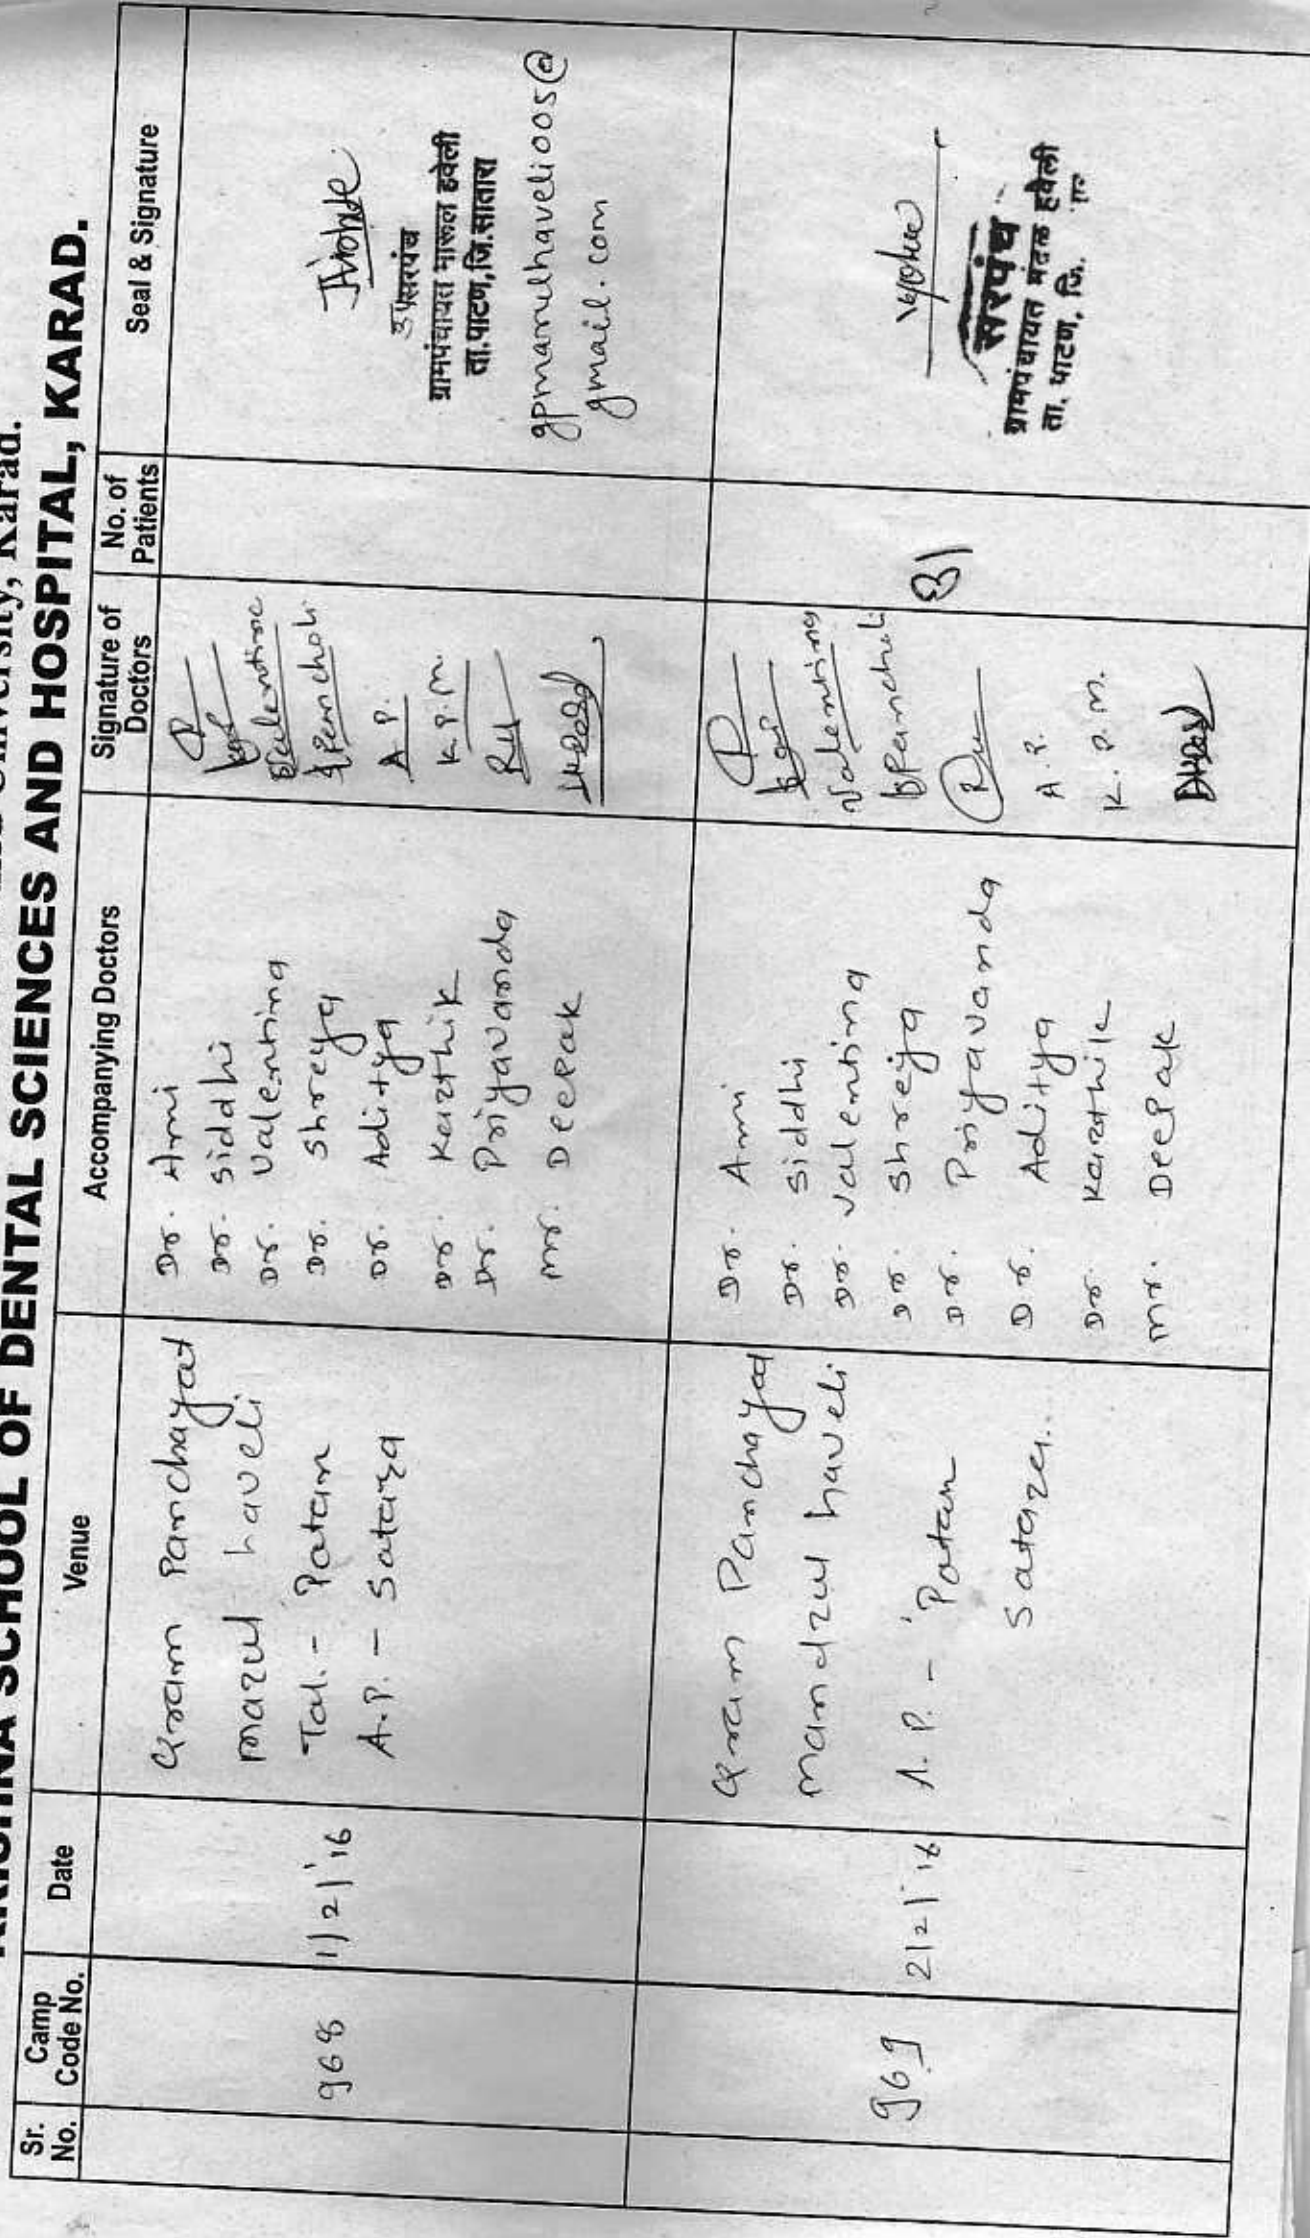 University, Karad.
SCHOOL OF DENTAL SCIENCES AND HOSPITAL, KARAD.
Sr. No.
Camp Code No.
Date
Venue
Accompanying Doctors
Signature of Doctors
No. of Patients
Seal & Signature
968
1/2/'16
Gram Panchayat
marul haveli
Tal. - Patan
A.P. - Satara
Dr. Ami
Dr. Siddhi
Dr. Valentina
Dr. Shreya
Dr. Aditya
Dr. Karthik
Dr. Priyavanda
Mr. Deepak
Valentina
Pancholi
A.P.
K.P.M.
उपसरपंच
ग्रामपंचायत मारूल हवेली
ता.पाटण,जि.सातारा
gpmarulhaveli005@
gmail.com
969
2/2/'16
Gram Panchayat
mandrul haveli
A.P. - Patan
Satara.
Dr. Ami
Dr. Siddhi
Dr. Valentina
Dr. Shreya
Dr. Priyavanda
Dr. Aditya
Dr. Karthik
Mr. Deepak
Valentina
Pancholi
A.P.
K.P.M.
31
सरपंच
ग्रामपंचायत मंद्रुळ हवेली
ता. पाटण, जि.